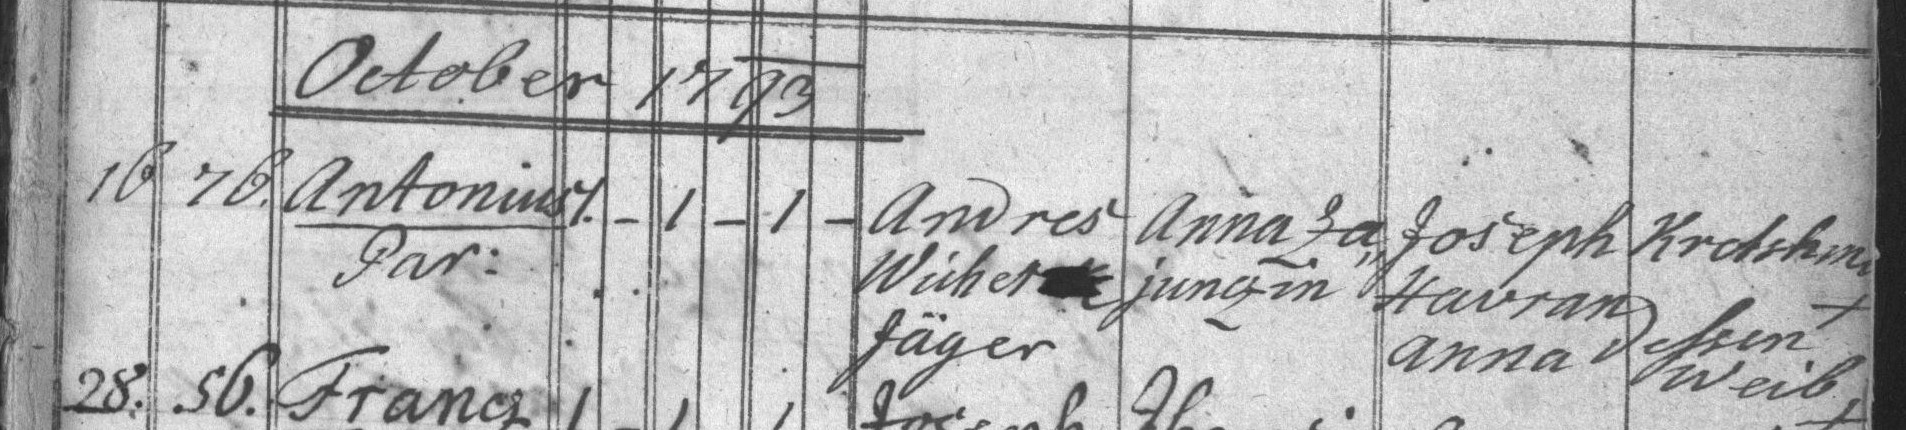 October 1793
16 76. Antonius 1. - 1 - 1 - Andres Anna Za„ Joseph Kretshm
Par: Wicher jungin Havran +
Jäger Anna dessen Weib +
28. 56. Francz 1 - 1 1 Joseph